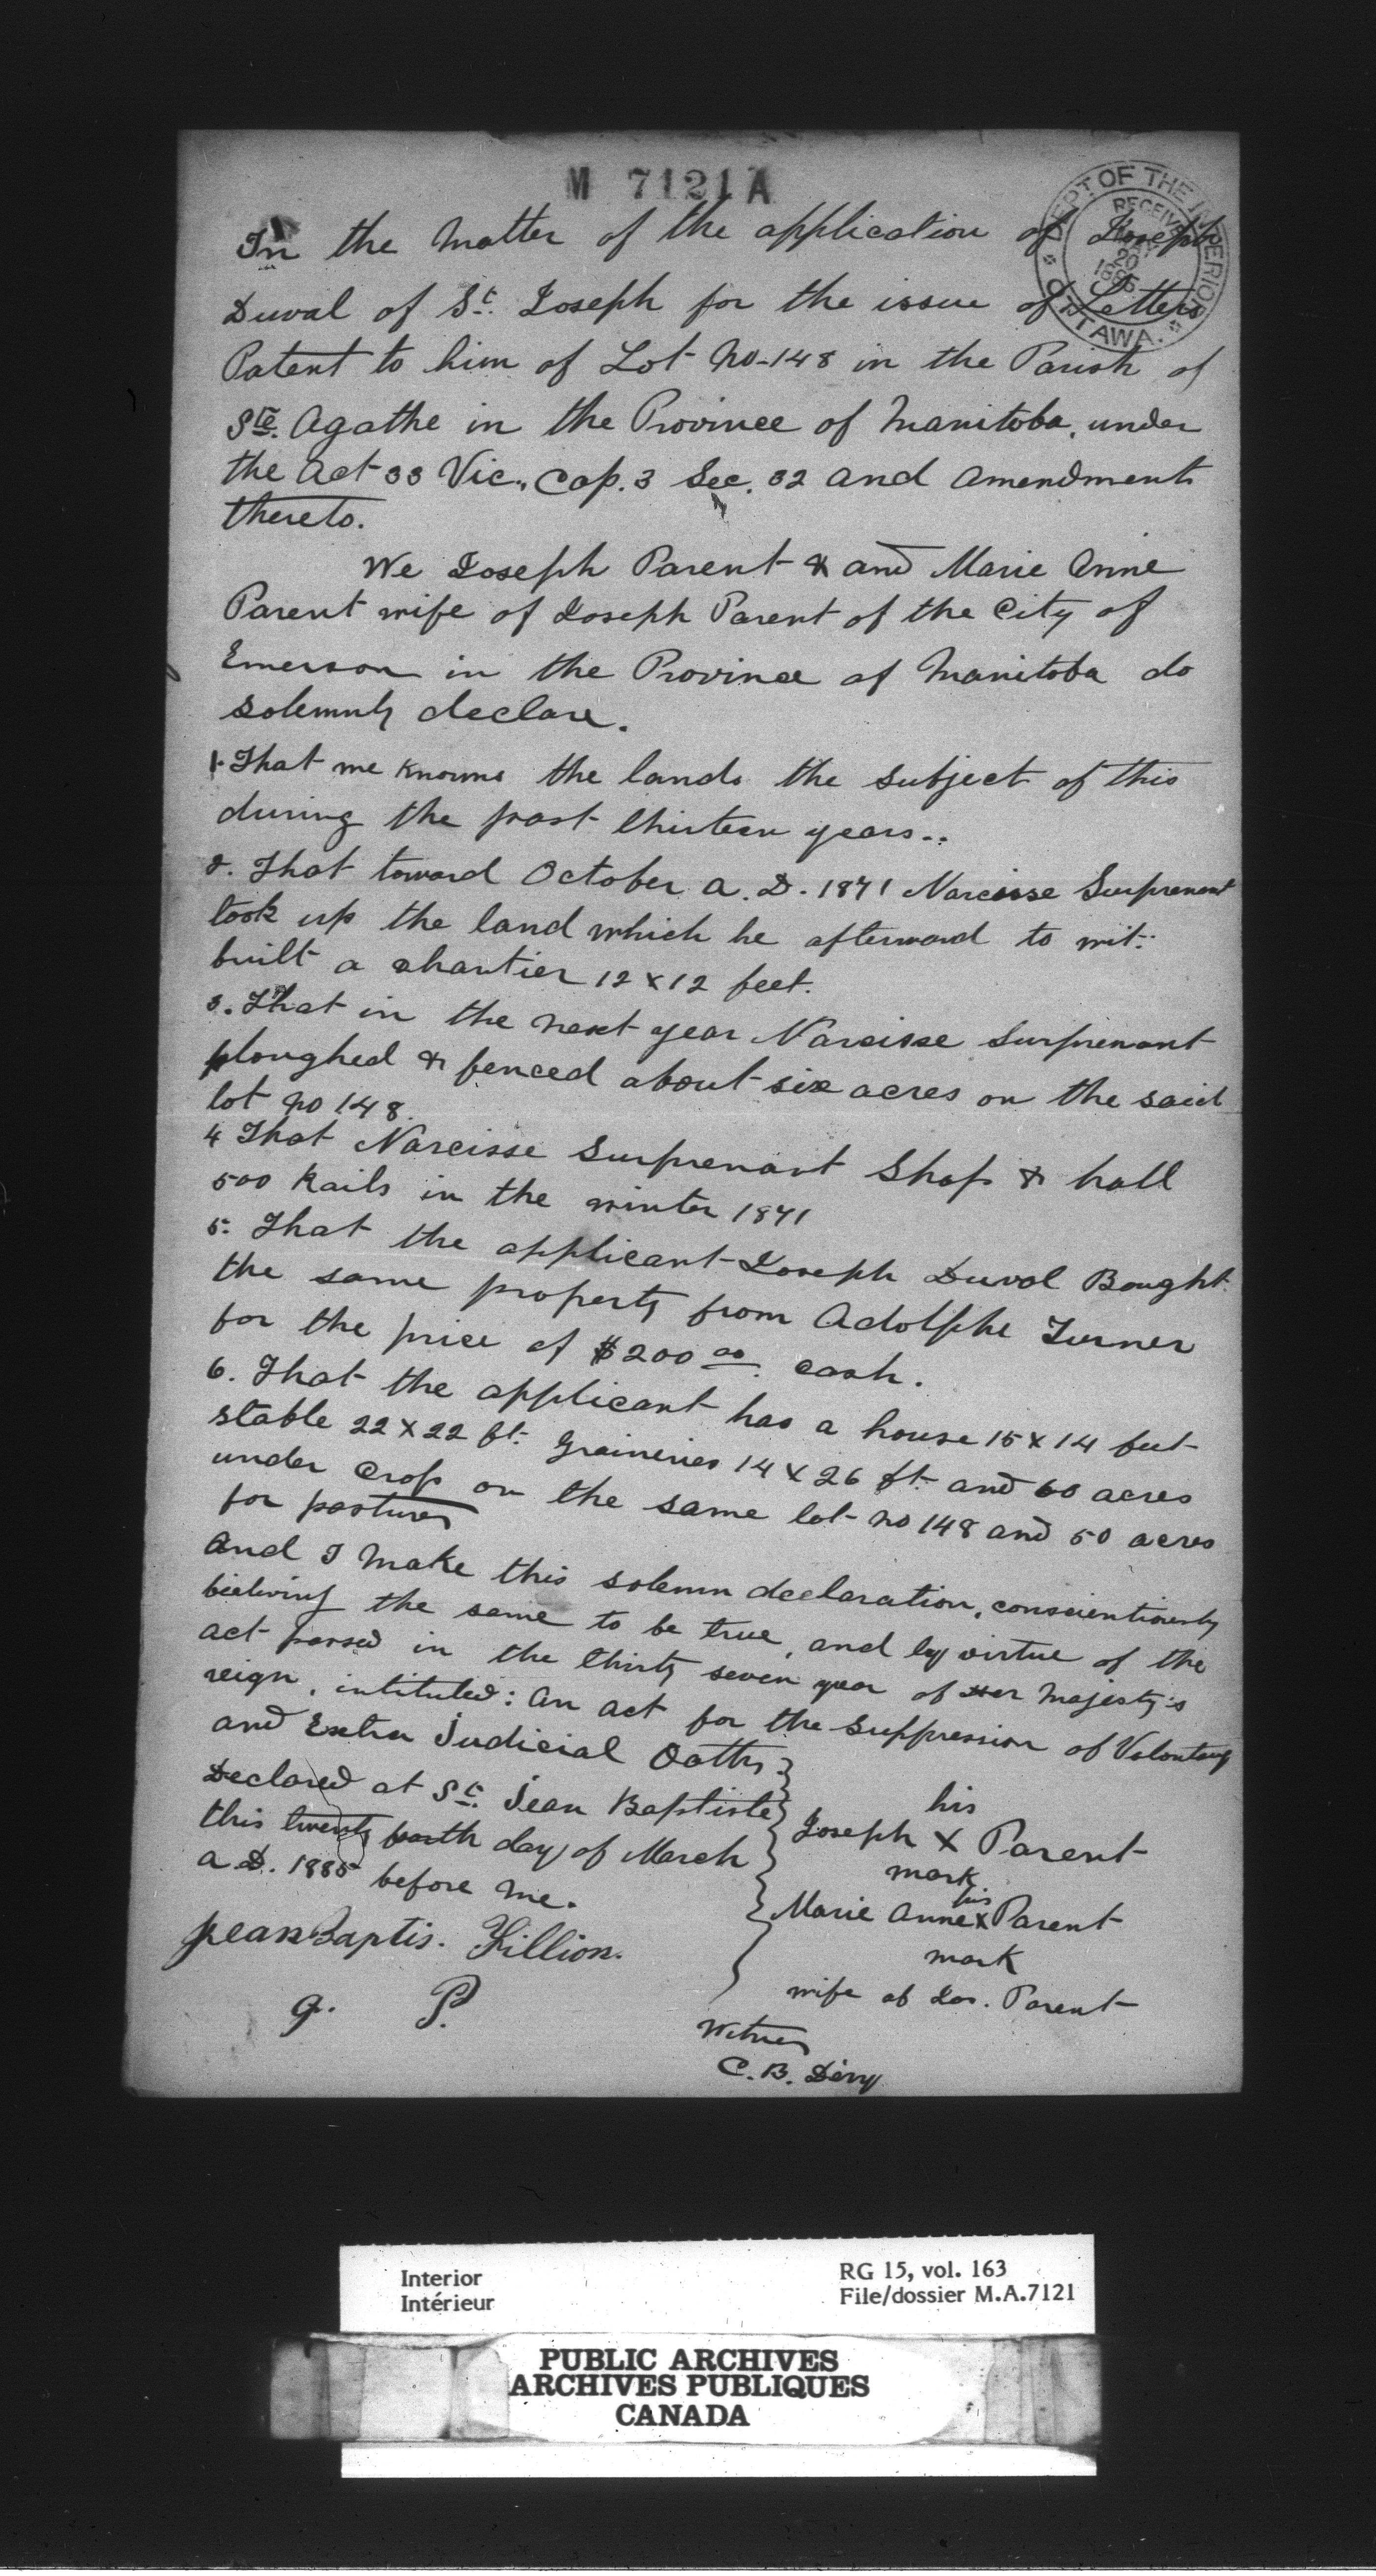 M 7121 A
DEPT OF THE INTERIOR
RECEIVED
20
1885
OTTAWA.
In the Matter of the application of Joseph
Duval of St. Joseph for the issue of Letters
Patent to him of Lot No-148 in the Parish of
Ste. Agathe in the Province of Manitoba, under
the Act 33 Vic., Cap. 3 Sec. 32 and Amendments
thereto.
We Joseph Parent & and Marie Anne
Parent wife of Joseph Parent of the City of
Emerson in the Province of Manitoba do
solemnly declare.
1. That we knowns the lands the subject of this
during the past thirteen years..
2. That toward October A.D. 1871 Narcisse Surprenant
took up the land which he afterward to wit:
built a chantier 12 x 12 feet.
3. That in the next year Narcisse Surprenant
ploughed & fenced about six acres on the said
lot no 148.
4 That Narcisse Surprenant Shop & hall
500 Rails in the winter 1871
5. That the applicant Joseph Duval Bought
the same property from Adolphe Turner
for the price of $200 00 cash.
6. That the applicant has a house 15 x 14 feet
stable 22 x 22 ft. Graineries 14 x 26 ft. and 60 acres
under Crop on the same lot no 148 and 50 acres
for pastures
And I Make this solemn declaration, conscientiously
bieliving the same to be true, and by virtue of the
act passed in the thirty seven year of Her Majesty's
reign, intituled: An Act for the Suppression of Volontary
and Extra Judicial Oaths.
Declared at St. Jean Baptiste
this twenty fourth day of March
A.D. 1885 before me.
Jean Baptis. Fillion.
J. P.
his
Joseph X Parent
mark
his
Marie Anne X Parent
mark
wife of Jos. Parent
Witness
C. B. Déry
Interior
Intérieur
RG 15, vol. 163
File/dossier M.A.7121
PUBLIC ARCHIVES
ARCHIVES PUBLIQUES
CANADA